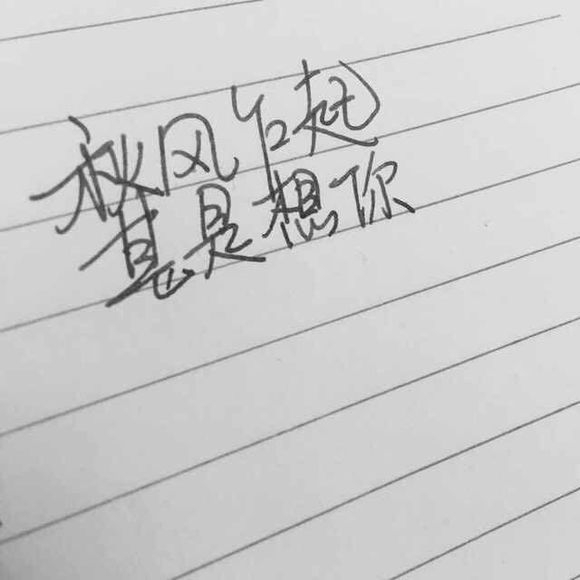 秋风乍起
甚是想你